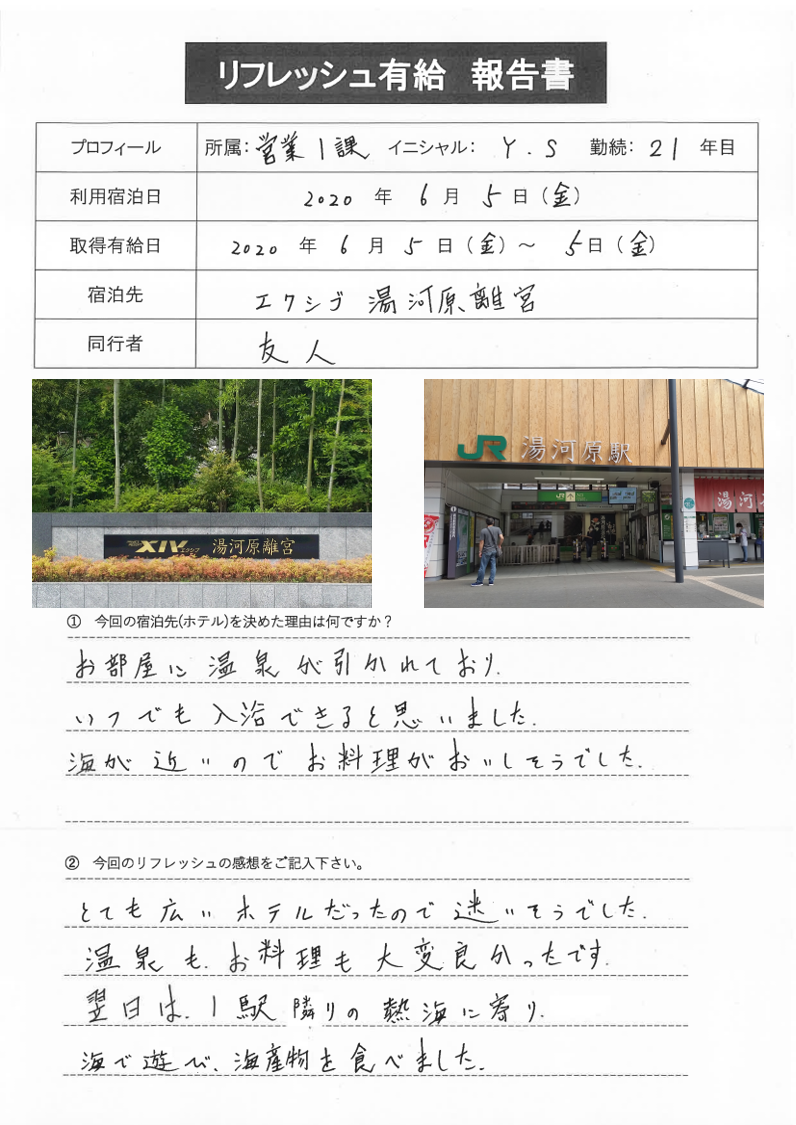 リフレッシュ有給 報告書
プロフィール 所属: 営業1課 イニシャル: Y.S 勤続: 21 年目
利用宿泊日 2020 年 6 月 5 日 (金)
取得有給日 2020 年 6 月 5 日 (金) ~ 5日 (金)
宿泊先 エクシブ 湯河原離宮
同行者 友人
XIV エクシブ 湯河原離宮
JR 湯河原駅
湯河
① 今回の宿泊先(ホテル)を決めた理由は何ですか?
お部屋に温泉が引かれており、
いつでも入浴できると思いました。
海が近いのでお料理がおいしそうでした。
② 今回のリフレッシュの感想をご記入下さい。
とても広いホテルだったので迷いそうでした。
温泉も、お料理も大変良かったです。
翌日は、1駅隣りの熱海に寄り、
海で遊び、海産物を食べました。